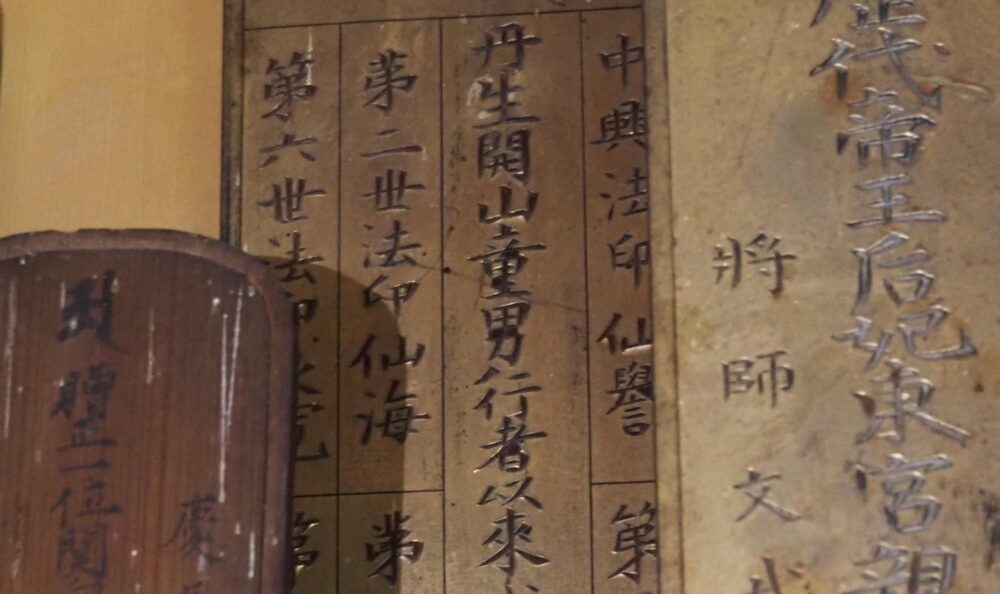 代帝王后妃東宮親
將師文武
中興法印仙譽
第
丹生開山童男行者以來
第二世法印仙海
第
第六世法印
第
慶
贈正一位関